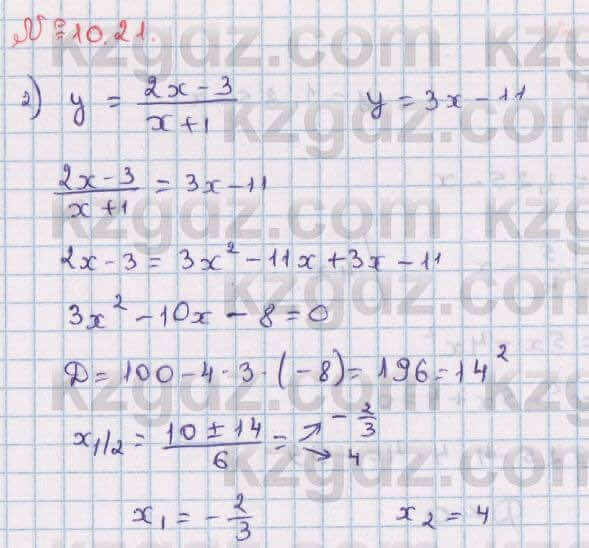 №10.21.
2) y = \frac{2x-3}{x+1}    y = 3x - 11
\frac{2x-3}{x+1} = 3x - 11
2x - 3 = 3x² - 11x + 3x - 11
3x² - 10x - 8 = 0
D = 100 - 4 · 3 · (-8) = 196 = 14²
x_{1/2} = \frac{10 ± 14}{6} = ↗ -\frac{2}{3} ↘ 4
x_1 = -\frac{2}{3}    x_2 = 4
kzgdz.com
kzgdz.com
kzgdz.com
kzgdz.com
kzgdz.com
kzgdz.com
kzgdz.com